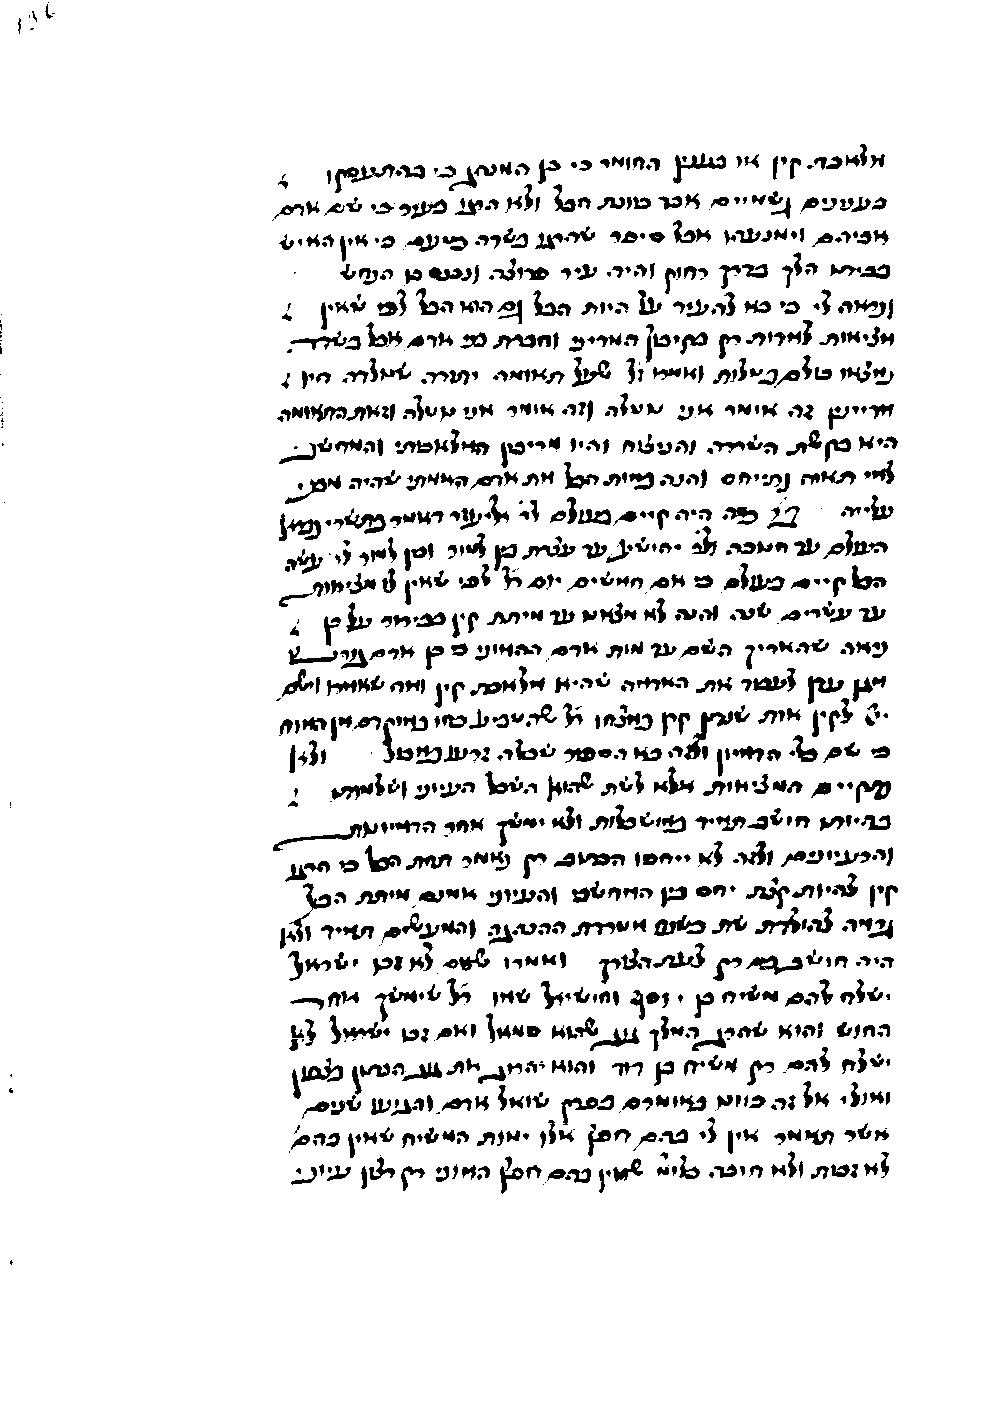 136
מלאכת קין או בענין החומר כי כן המנהג כי בהתעסקו
בענינים גשמיים אבד כוונת הבל ולא הרגו בעיר כי שם אדם
אביהם וימנעהו אבל סיפר שהרגו בשדה כי אין האיש
בביתו הלך בדרך רחוק והיה עיר פרוצה ונכנס בו הנחש
ונראה לי כי בא להעיר על היות הבל גם הוא הבל לפי שאין
מציאות למדות רק בקיבוץ המדיני וחברת בני אדם אבל בשדה
נמצאו כולם בטלות ואמרו ז"ל שעל תאומה יתרה שנולדה היו
מדיינין זה אומר אני אטלה וזה אומר אני אטלה וזאת התאומה
היא בקשת השררה והנצוח והיו מריבין המלאכותי והמחשבי
למי תאות נתייחס והנה במות הבל מת אדם האמתי שהיה
עליה כמה היה קיים בעולם לר' אליעזר דאמר בתשרי נברא
העולם עד חנוכה ולר' יהושע עד עצרת בין למר ובין למר לא עשה
הבל קיים בעולם כי אם חמשים יום ר"ל לפי שאין לו מציאות
עד עשרים שנה והנה לא נמצא עד מיתת קין בבירור על כן
נראה שהאריך השם עד מות אדם ההמוני כי בן אדם
גן עדן לעבוד את האדמה שהיא מלאכת קין ומה שאמרו וישם
יי' לקין אות שנתן קרן במצחו ר"ל שהשביע כחו במוקדם מן המוח
כי שם כלי הדמיון ולזה בא הספור שכלה זרעו במבול ולא
נתקיים המציאות אלא לשת שהוא השכל העיוני ושלמותו
בהיותו חושב תמיד במושכלות ולא ימשך אחר הדמיונות
והרעיונים ולזה לא ייחסו הכתוב רק נאמר תחת הבל כי הרגו
קין להיות קצת יחס בין המחשבי והעיוני אמנם מיתת הבל
גרמה להולדת שת בשגם משרת ההנהגה והמעשים תמיד ולא
היה חושב בם רק לעת הצורך ואמרו שאם לא זכו ישראל
ישלח להם משיח בן יוסף וחישיאל שמו ר"ל שימשך אחר
החוש והוא שהרג המלך גוג שהוא סמאל ואם זכו ישראל לא
ישלח להם רק משיח בן דוד והוא יהרוג את גוג הנתון בצפון
ואולי אל זה כוונו באומרם בפרק שואל אדם והגיעו שנים
אשר תאמר אין לי בהם חפץ אלו ימות המשיח שאין בהם
לא זכות ולא חובה כלומ' שאין בהם חפץ המוני רק רצון עיוני